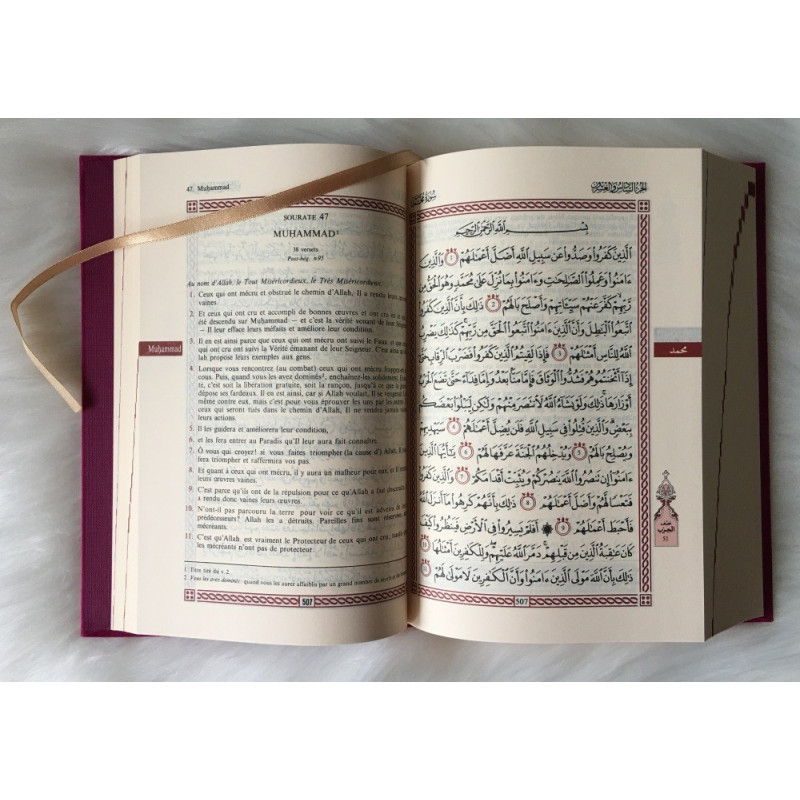 47. Muḥammad
SOURATE 47
MUḤAMMAD¹
38 versets.
Post-hég. n°95
Au nom d'Allah, le Tout Miséricordieux, le Très Miséricordieux.
1. Ceux qui ont mécru et obstrué le chemin d'Allah, Il a rendu leurs œuvres
vaines.
2. Et ceux qui ont cru et accompli de bonnes œuvres et ont cru en ce qui a
été descendu sur Muḥammad — et c'est la vérité venant de leur Seigneur
— Il leur efface leurs méfaits et améliore leur condition.
3. Il en est ainsi parce que ceux qui ont mécru ont suivi le Faux et que ceux
qui ont cru ont suivi la Vérité émanant de leur Seigneur. C'est ainsi qu'Al-
lah propose leurs exemples aux gens.
4. Lorsque vous rencontrez (au combat) ceux qui ont mécru, frappez-en les
cous. Puis, quand vous les avez dominés², enchaînez-les solidement. Ensuite,
c'est soit la libération gratuite, soit la rançon, jusqu'à ce que la guerre
dépose ses fardeaux. Il en est ainsi, car si Allah voulait, Il se vengerait Lui-
même contre eux, mais c'est pour vous éprouver les uns par les autres. Et
ceux qui seront tués dans le chemin d'Allah, Il ne rendra jamais vaines
leurs actions.
5. Il les guidera et améliorera leur condition,
6. et les fera entrer au Paradis qu'Il leur aura fait connaître.
7. Ô vous qui croyez! si vous faites triompher (la cause d') Allah, Il vous
fera triompher et raffermira vos pas.
8. Et quant à ceux qui ont mécru, il y aura un malheur pour eux, et Il a rendu
leurs œuvres vaines.
9. C'est parce qu'ils ont de la répulsion pour ce qu'Allah a fait descendre. Il
a rendu donc vaines leurs œuvres.
10. N'ont-il pas parcouru la terre pour voir ce qu'il est advenu de leurs
prédécesseurs? Allah les a détruits. Pareilles fins sont réservées aux
mécréants.
11. C'est qu'Allah est vraiment le Protecteur de ceux qui ont cru; tandis que
les mécréants n'ont pas de protecteur.
1. Titre tiré du v.2.
2. Fous les avez dominés: quand vous les aurez affaiblis par un grand nombre de
507
Muḥammad
سورة محمد
الجزء السادس والعشرون
بسم الله الرحمن الرحيم
الَّذِينَ كَفَرُوا وَصَدُّوا عَن سَبِيلِ اللَّهِ أَضَلَّ أَعْمَٰلَهُمْ ١ وَالَّذِينَ
ءَامَنُوا وَعَمِلُوا الصَّٰلِحَٰتِ وَءَامَنُوا بِمَا نُزِّلَ عَلَىٰ مُحَمَّدٍ وَهُوَ الْحَقُّ مِن
رَّبِّهِمْ كَفَّرَ عَنْهُمْ سَيِّـَٔاتِهِمْ وَأَصْلَحَ بَالَهُمْ ٢ ذَٰلِكَ بِأَنَّ الَّذِينَ كَفَرُوا
اتَّبَعُوا الْبَٰطِلَ وَأَنَّ الَّذِينَ ءَامَنُوا اتَّبَعُوا الْحَقَّ مِن رَّبِّهِمْ كَذَٰلِكَ يَضْرِبُ
اللَّهُ لِلنَّاسِ أَمْثَٰلَهُمْ ٣ فَإِذَا لَقِيتُمُ الَّذِينَ كَفَرُوا فَضَرْبَ الرِّقَابِ حَتَّىٰ
إِذَا أَثْخَنتُمُوهُمْ فَشُدُّوا الْوَثَاقَ فَإِمَّا مَنًّا بَعْدُ وَإِمَّا فِدَاءً حَتَّىٰ تَضَعَ الْحَرْبُ
أَوْزَارَهَا ذَٰلِكَ وَلَوْ يَشَاءُ اللَّهُ لَانتَصَرَ مِنْهُمْ وَلَٰكِن لِّيَبْلُوَا بَعْضَكُم
بِبَعْضٍ وَالَّذِينَ قُتِلُوا فِي سَبِيلِ اللَّهِ فَلَن يُضِلَّ أَعْمَٰلَهُمْ ٤ سَيَهْدِيهِمْ
وَيُصْلِحُ بَالَهُمْ ٥ وَيُدْخِلُهُمُ الْجَنَّةَ عَرَّفَهَا لَهُمْ ٦ يَٰأَيُّهَا الَّذِينَ
ءَامَنُوا إِن تَنصُرُوا اللَّهَ يَنصُرْكُمْ وَيُثَبِّتْ أَقْدَامَكُمْ ٧ وَالَّذِينَ كَفَرُوا
فَتَعْسًا لَّهُمْ وَأَضَلَّ أَعْمَٰلَهُمْ ٨ ذَٰلِكَ بِأَنَّهُمْ كَرِهُوا مَا أَنزَلَ اللَّهُ
فَأَحْبَطَ أَعْمَٰلَهُمْ ٩ أَفَلَمْ يَسِيرُوا فِي الْأَرْضِ فَيَنظُرُوا كَيْفَ
كَانَ عَٰقِبَةُ الَّذِينَ مِن قَبْلِهِمْ دَمَّرَ اللَّهُ عَلَيْهِمْ وَلِلْكَٰفِرِينَ أَمْثَٰلُهَا ١٠
ذَٰلِكَ بِأَنَّ اللَّهَ مَوْلَى الَّذِينَ ءَامَنُوا وَأَنَّ الْكَٰفِرِينَ لَا مَوْلَىٰ لَهُمْ ١١
507
محمد
نصف
الحزب
51